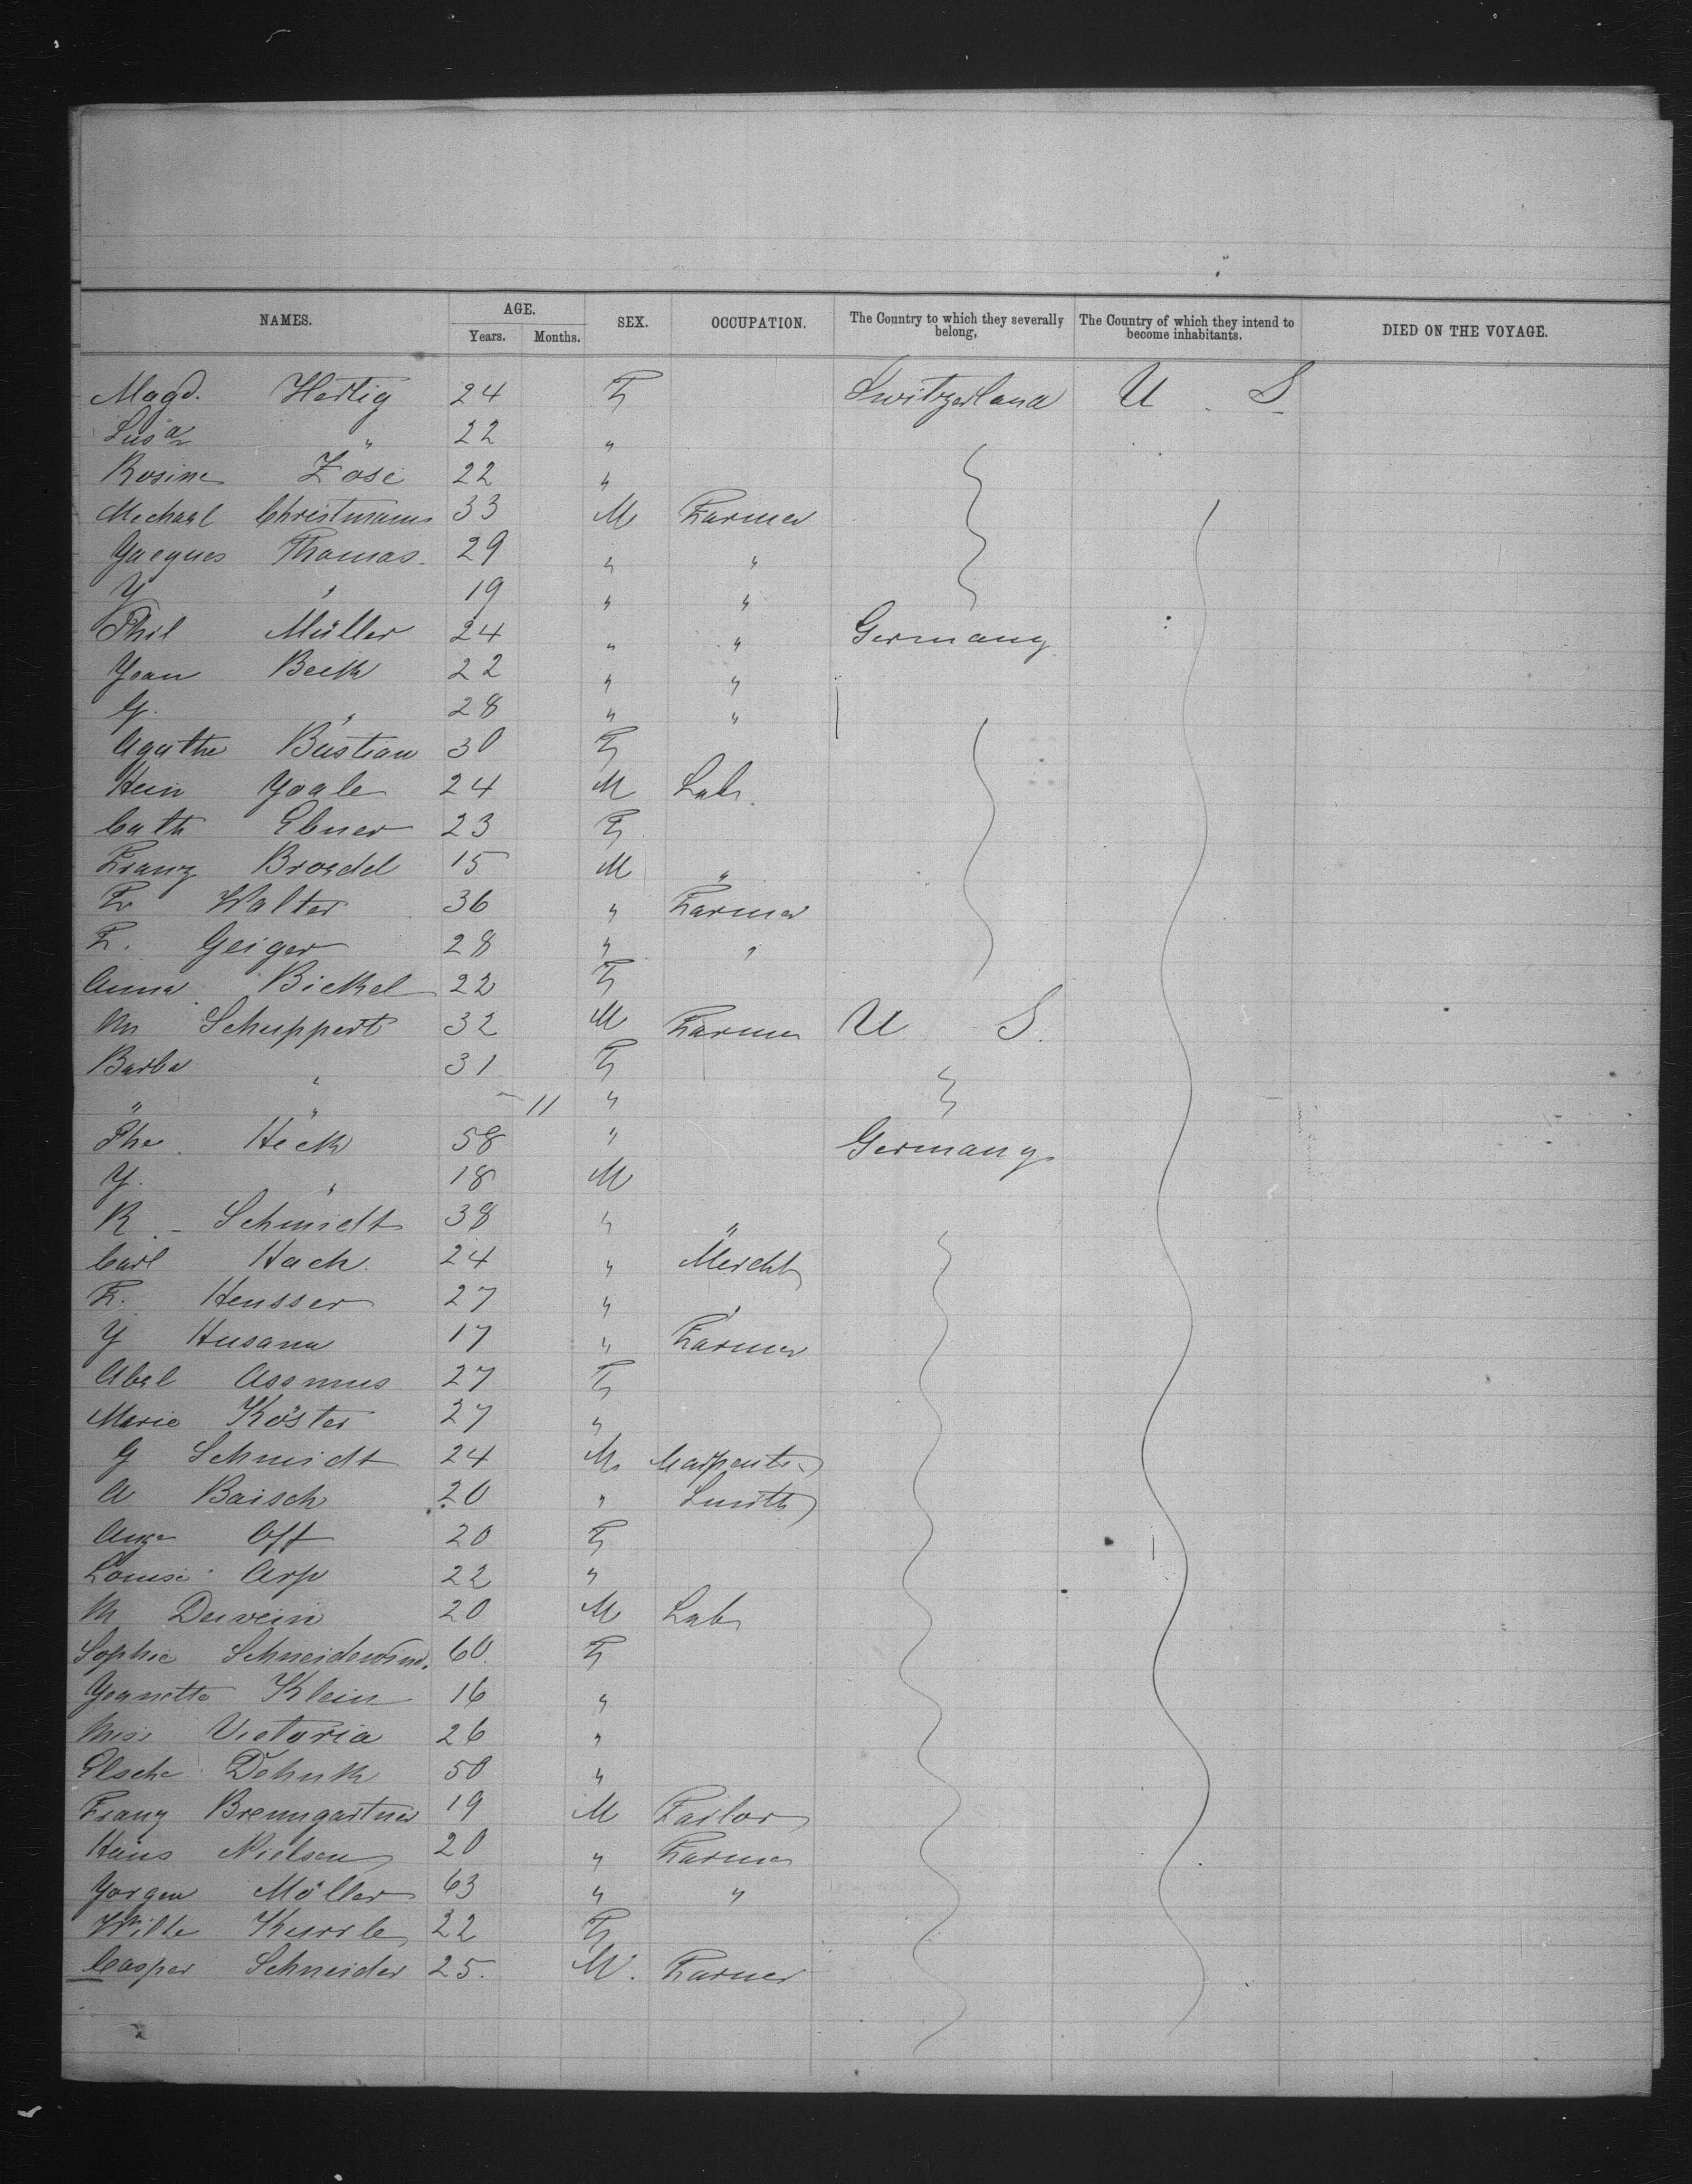 NAMES. AGE. SEX. OCCUPATION. The Country to which they severally belong, The Country of which they intend to become inhabitants. DIED ON THE VOYAGE.
Years. Months.
Magd. Hertig 24 F Switzerland U. S
Susa " 22 "
Rosine Zosi 22 "
Mechael Christmann 33 M Farmer
Jacques Thomas. 29 " "
J " 19 " "
Phil Müller 24 " " Germany
Jean Beck 22 " "
G. " 28 " "
Agathe Bastian 30 F
Hein Joale 24 M Lab.
Cath Ebner 23 F
Franz Broedel 15 M "
Fr Walter 36 " Farmer
F. Geiger 28 " "
Anna Bickel 22 F
Wm Schuppert 32 M Farmer U S.
Barba " 31 F
" " 11 "
Phe. Heck 58 " Germany
J. " 18 M
R Schmidt 38 " "
Carl Hach. 24 " Mercht
F. Heusser 27 " "
J Husann 17 " Farmer
Abel Assmus 27 F
Marie Köster 27 "
G Schmidt 24 M Carpenter
A Baisch 20 " Smith
Off 20 F
Louise Arp 22 "
M Dewein 20 M Lab
Sophie Schneidewind. 60. F
Jeanette Klein 16 "
Miss Victoria 26 "
Elsche Dehnk 50 "
Franz Bremgartner 19 M Tailor
Hans Nielsen 20 " Farmer
Jorgen Möller 63 " "
Wilhe Kurrle 22 F
Casper Schneider 25. M. Farmer